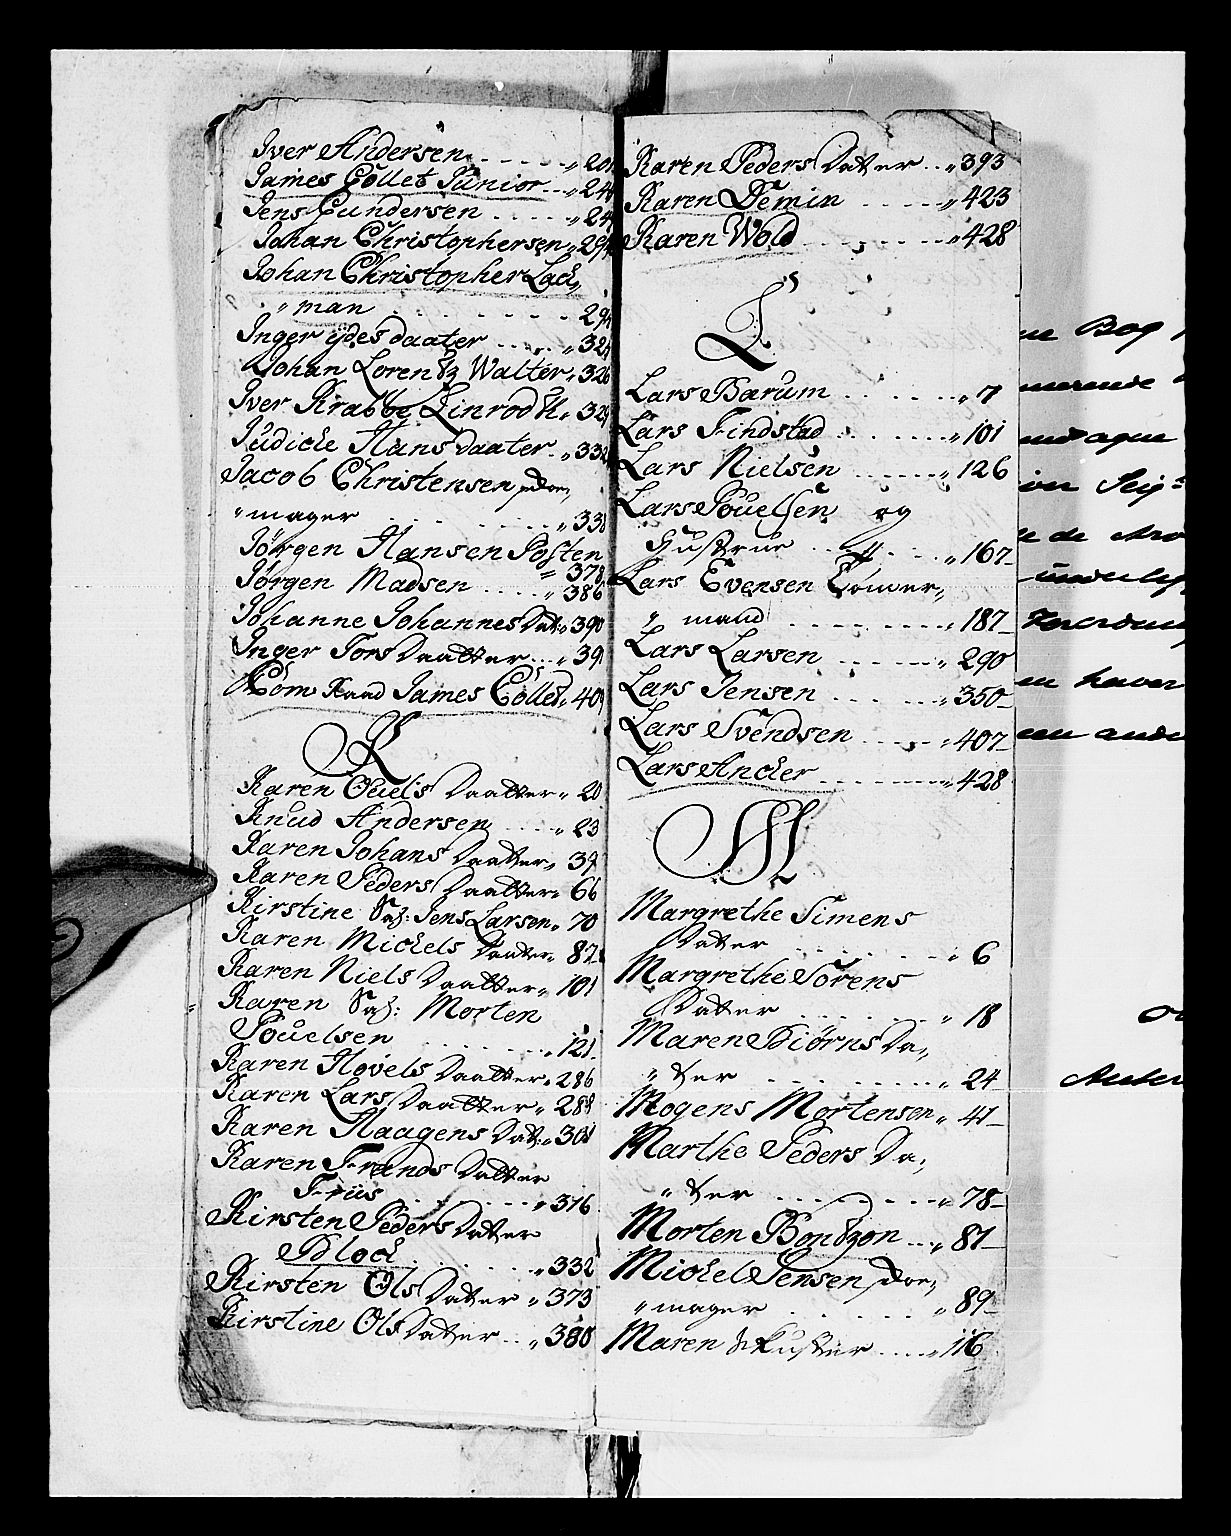 Iver Andersen - - - - „ 20
James Collet Junior - - „ 24
Jens Gundersen - - - - - „ 24
Johan Christophersen „ 294
Johan Christopher Lach„
„ man - - - - - - - - 294
Inger ÿdes daater - - - - „ 324
Johan Lorentz Walter „ 326
Iver Krabbe Linrod „ 329
Judiche Hans daater - „ 332
Jacob Christensen
„ mager - - - - - - „ 338
Jørgen Hansen Posten
„ 378
Jørgen Madsen - - - - „ 386
Johanne Johannes Dat: „ 390
Inger Tors Daatter - - - „ 39
James Collet „ 409
K
Karen Oluels Daatter „ 20
Knud Andersen - - - - „ 23
Karen Johans Daatter „ 39
Karen Peders Daatter „ 66
Kirstine Sal: Jens Larsen „ 70
Karen Michels Daater „ 82
Karen Niels Daatter „ 101
Karen Sal: Morten
Pouelsen - - - - - - „ 121
Karen Hovels Daatter „ 286
Karen Lars Daatter „ 288
Karen Haagens Dat: „ 301
Karen Frands Datter
Friis - - - - - - „ 316
Kirsten Peders Datter
Block - - - - - - „ 332
Kirsten Ols Datter „ 373
Kirstine Ols Datter - - „ 380
Karen Peders Datter - - „ 393
Karen Demin - - - - - „ 423
Karen Wold - - - - - - „ 428
L
Lars Barum - - - - - - „ 7
Lars Findstad - - - - - „ 101
Lars Nielsen - - - - - „ 126
Lars Pouelsen og
Hustrue - - - - - „ 167
Lars Evensen Tømer„
„ mand - - - - - - - - „ 187
Lars Larsen - - - - - „ 290
Lars Jensen - - - - - „ 350
Lars Svendsen - - - - „ 407
Lars Ancher - - - - - - „ 428
M
Margrethe Simens
Datter - - - - - - - „ 6
Margrethe Sörens
Datter - - - - - - - „ 18
Maren Biörns Da„
„ tter - - - - - - - - „ 24
Mogens Mortensen „ 41
Marthe Peders Da„
„ tter - - - - - - - - „ 78
Morten Bontzon - - „ 81
Michel Jensen
„ mager - - - - - - „ 89
Maren - - - - „ 116
ne Bog
merende
haver